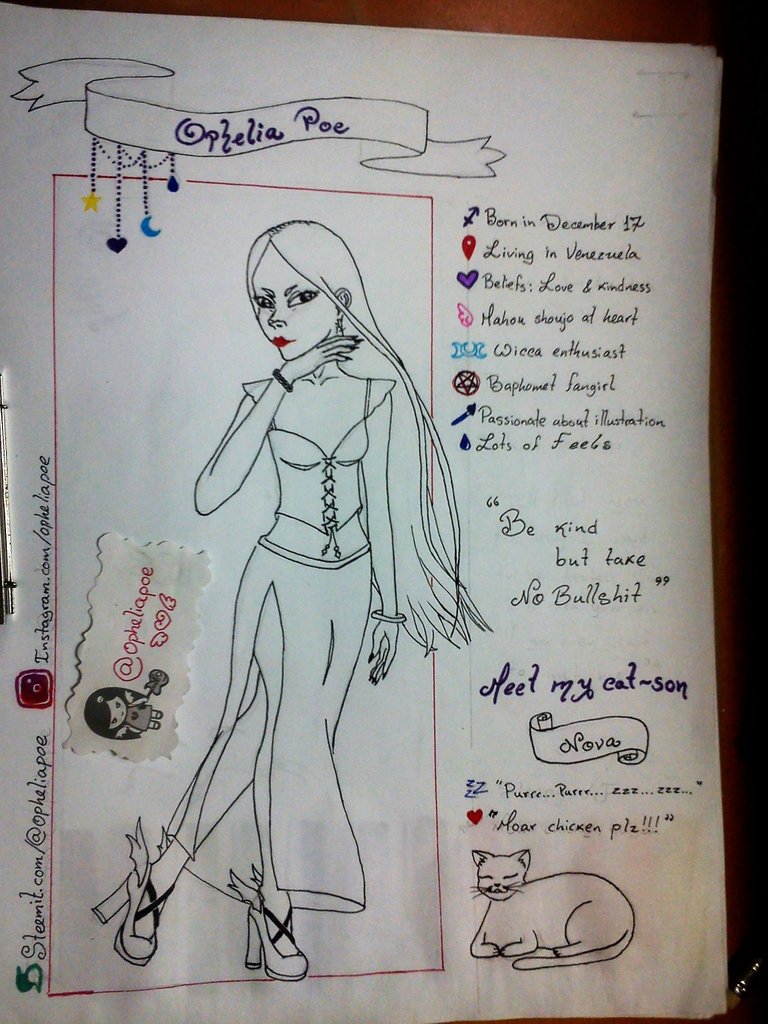 Ophelia Poe
Born in December 17
Living in Venezuela
Beliefs: Love & kindness
Mahou shoujo at heart
Wicca enthusiast
Baphomet fangirl
Passionate about illustration
Lots of Feels
"Be kind
but take
No Bullshit"
Meet my cat~son
Nova
zzz "Purrr...Purrr... zzz...zzz..."
"Moar chicken plz!!!"
@Opheliapoe
Instagram.com/opheliapoe
Steemit.com/@opheliapoe